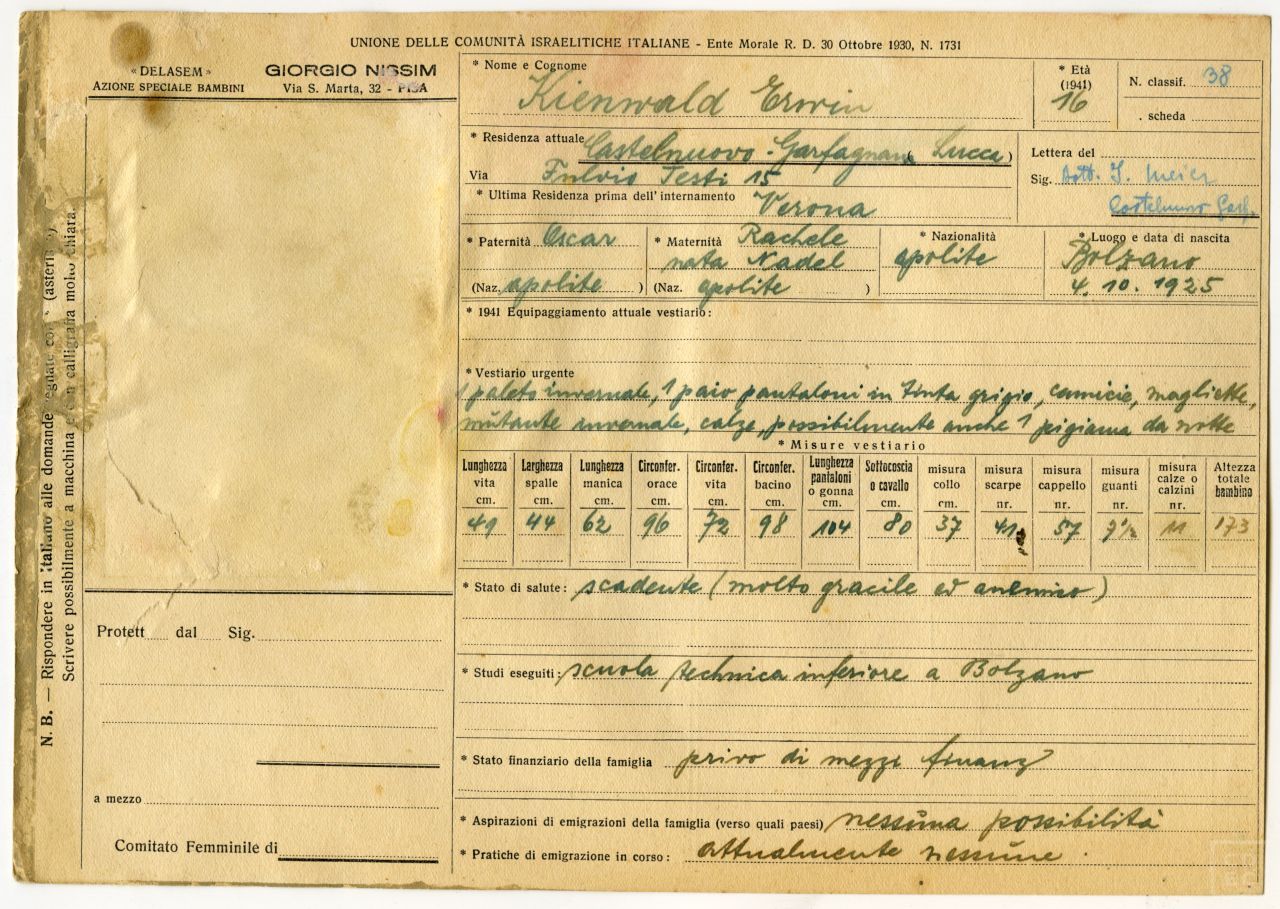 UNIONE DELLE COMUNITÀ ISRAELITICHE ITALIANE - Ente Morale R. D. 30 Ottobre 1930, N. 1731
« DELASEM »
AZIONE SPECIALE BAMBINI
GIORGIO NISSIM
Via S. Marta, 32 - PISA
N. B. — Rispondere in italiano alle domande segnate con * (asterisco)
Scrivere possibilmente a macchina e con calligrafia molto chiara.
* Nome e Cognome
Kienwald Erwin
* Età
(1941)
16
N. classif. 38
. scheda
* Residenza attuale Castelnuovo-Garfagnana (Lucca)
Via Fulvio Testi 15
* Ultima Residenza prima dell'internamento Verona
Lettera del
Sig. Dott. J. Meier
Castelnuovo Garf.
* Paternità Oscar
(Naz. apolite )
* Maternità Rachele
nata Nadel
(Naz. apolite )
* Nazionalità
apolite
* Luogo e data di nascita
Bolzano
4. 10. 1925
* 1941 Equipaggiamento attuale vestiario:
* Vestiario urgente
1 paletò invernale, 1 paio pantaloni in tinta grigio, camicie, magliette,
mutante invernale, calze, possibilmente anche 1 pigiama da notte
* Misure vestiario
Lunghezza vita cm. 49
Larghezza spalle cm. 44
Lunghezza manica cm. 62
Circonfer. orace cm. 96
Circonfer. vita cm. 72
Circonfer. bacino cm. 98
Lunghezza pantaloni o gonna cm. 104
Sottocoscia o cavallo cm. 80
misura collo cm. 37
misura scarpe nr. 41
misura cappello nr. 57
misura guanti nr.
misura calze o calzini nr. 11
Altezza totale bambino 173
* Stato di salute: scadente (molto gracile ed anemico)
* Studi eseguiti: scuola technica inferiore a Bolzano
* Stato finanziario della famiglia privo di mezzi finanz
* Aspirazioni di emigrazioni della famiglia (verso quali paesi) nessuna possibilità
* Pratiche di emigrazione in corso: attualmente nessune.
Protett dal Sig.
a mezzo
Comitato Femminile di